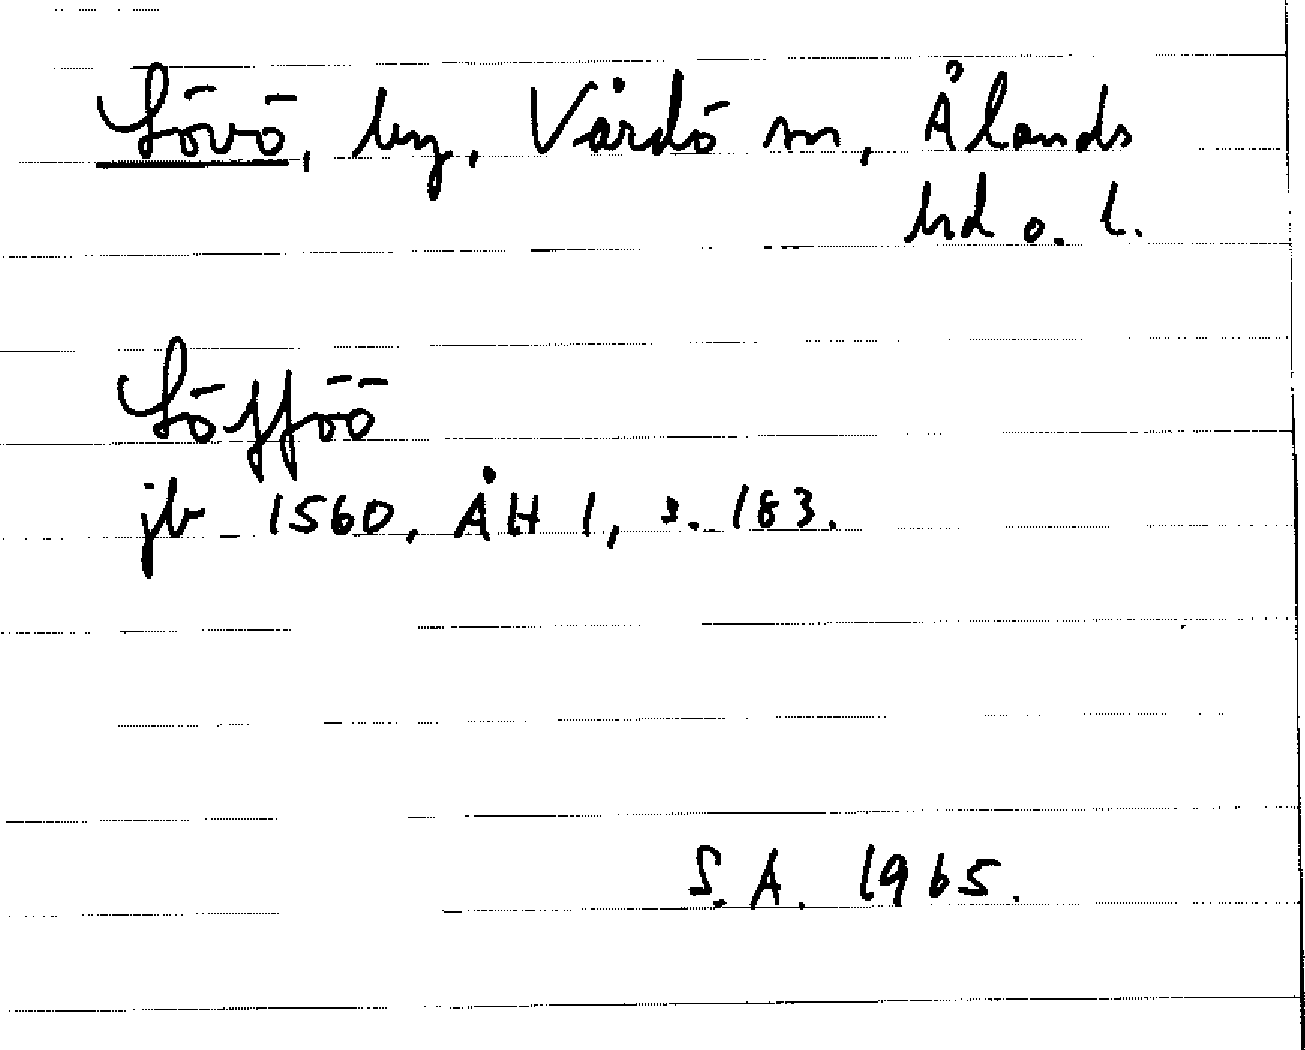 Lövö, by, Vårdö sn, Ålands
hd o. l.
Löfföö
jb 1560, ÅH 1, s. 183.
S.A. 1965.